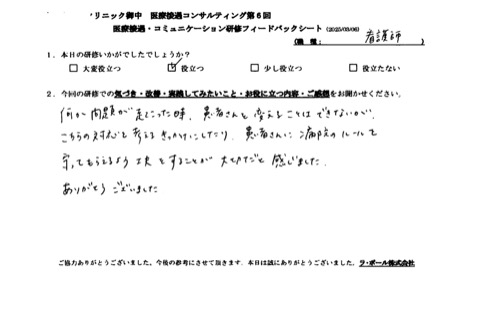 リニック御中 医療接遇コンサルティング第6回
医療接遇・コミュニケーション研修フィードバックシート (2025/03/06)
(職 種: 看護師 )
1.本日の研修いかがでしたでしょうか?
□ 大変役立つ ☑ 役立つ □ 少し役立つ □ 役立たない
2.今回の研修での気づき・改善・実践してみたいこと・お役に立つ内容・ご感想をお聞かせください。
何か問題が起こった時、患者さんを変えることはできないが、
こちらの対応を考えるきっかけにしたり、患者さんに病院のルールを
守ってもらえるよう工夫をすることが大切だと感じました。
ありがとうございました
ご協力ありがとうございました。今後の参考にさせて頂きます。本日は誠にありがとうございました。ラ・ポール株式会社